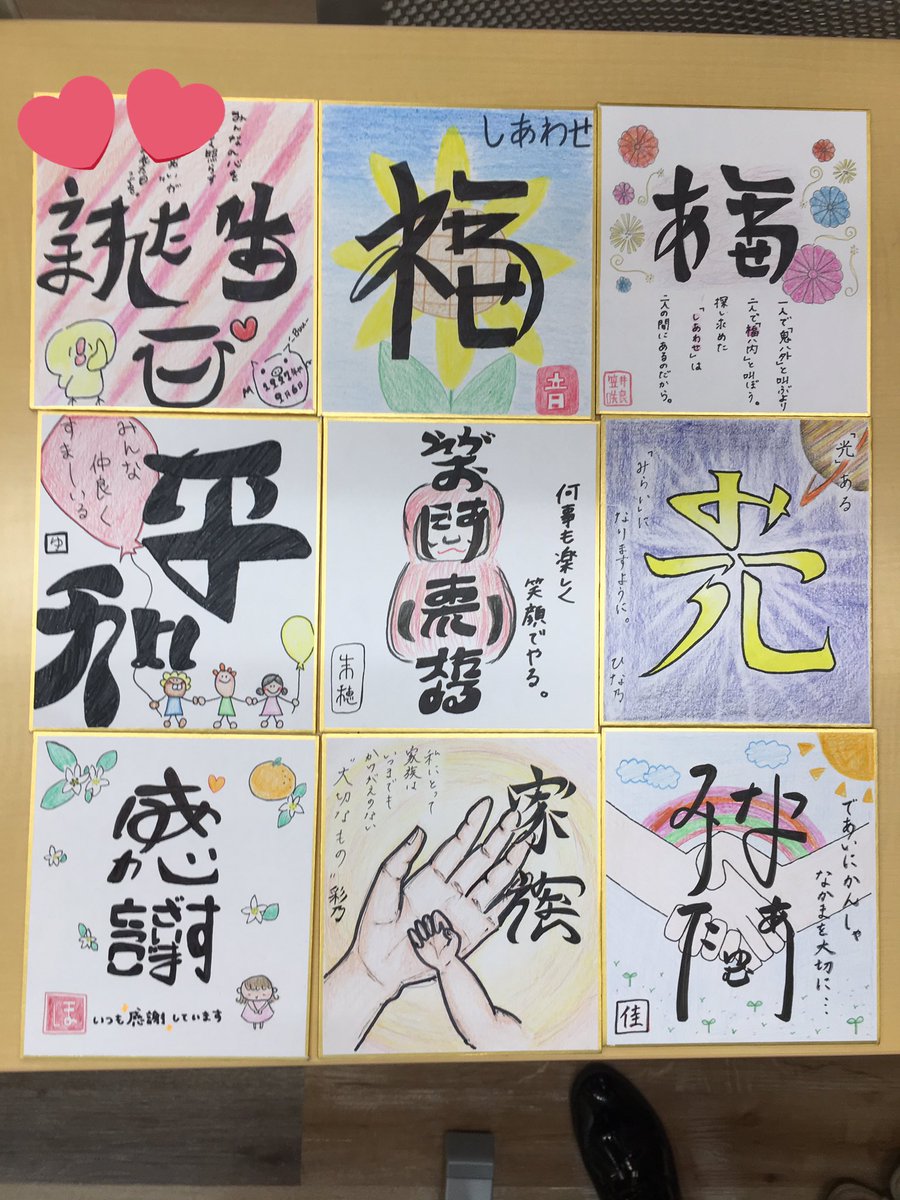 みんなの心を
しあわせ
福
福
一人で「鬼ハ外」と叫ぶより
二人で「福ハ内」と叫ぼう。
探し求めた
「しあわせ」は
二人の間にあるのだから。
みんな
仲良く
すまーいる
平和
ゆ
笑門来福
何事も楽しく
笑顔でやる。
朱穂
「光」ある
光
「みらい」に
なりますように。
ひな乃
感謝
ほ
いつも感謝しています
家族
私にとって
家族は
いつまでも
かけがえのない
"大切なもの"
彩乃
であいにかんしゃ
なかまを大切に…
佳